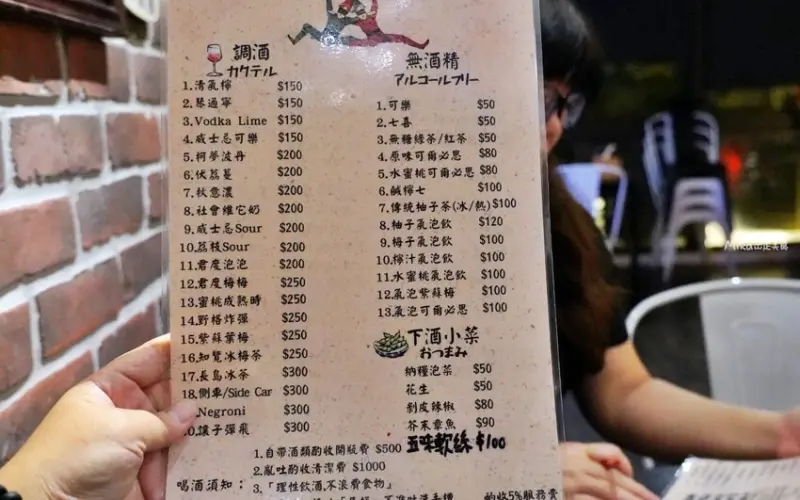 調酒
カクテル
1.清氣檸 $150
2.琴通寧 $150
3.Vodka Lime $150
4.威士忌可樂 $150
5.柯夢波丹 $200
6.伏荔蔓 $200
7.秋意濃 $200
8.社會維它奶 $200
9.威士忌Sour $200
10.荔枝Sour $200
11.君度泡泡 $200
12.君度梅梅 $250
13.蜜桃成熟時 $250
14.野格炸彈 $250
15.紫蘇葉梅 $250
16.知覽冰梅茶 $250
17.長島冰茶 $300
18.側車/Side Car $300
Negroni $300
20.讓子彈飛 $300
無酒精
アルコールフリー
1.可樂 $50
2.七喜 $50
3.無糖綠茶/紅茶 $50
4.原味可爾必思 $80
5.水蜜桃可爾必思 $80
6.鹹檸七 $100
7.傳統柚子茶(冰/熱) $100
8.柚子氣泡飲 $120
9.梅子氣泡飲 $100
10.檸汁氣泡飲 $100
11.水蜜桃氣泡飲 $100
12.氣泡紫蘇梅 $100
13.氣泡可爾必思 $100
下酒小菜
おつまみ
納種泡菜 $50
花生 $50
剝皮辣椒 $80
芥末章魚 $90
五味軟絲 $100
喝酒須知：
1.自帶酒類酌收開瓶費 $500
2.亂吐酌收清潔費 $1000
3.「理性飲酒,不浪費食物」
酌收5%服務費